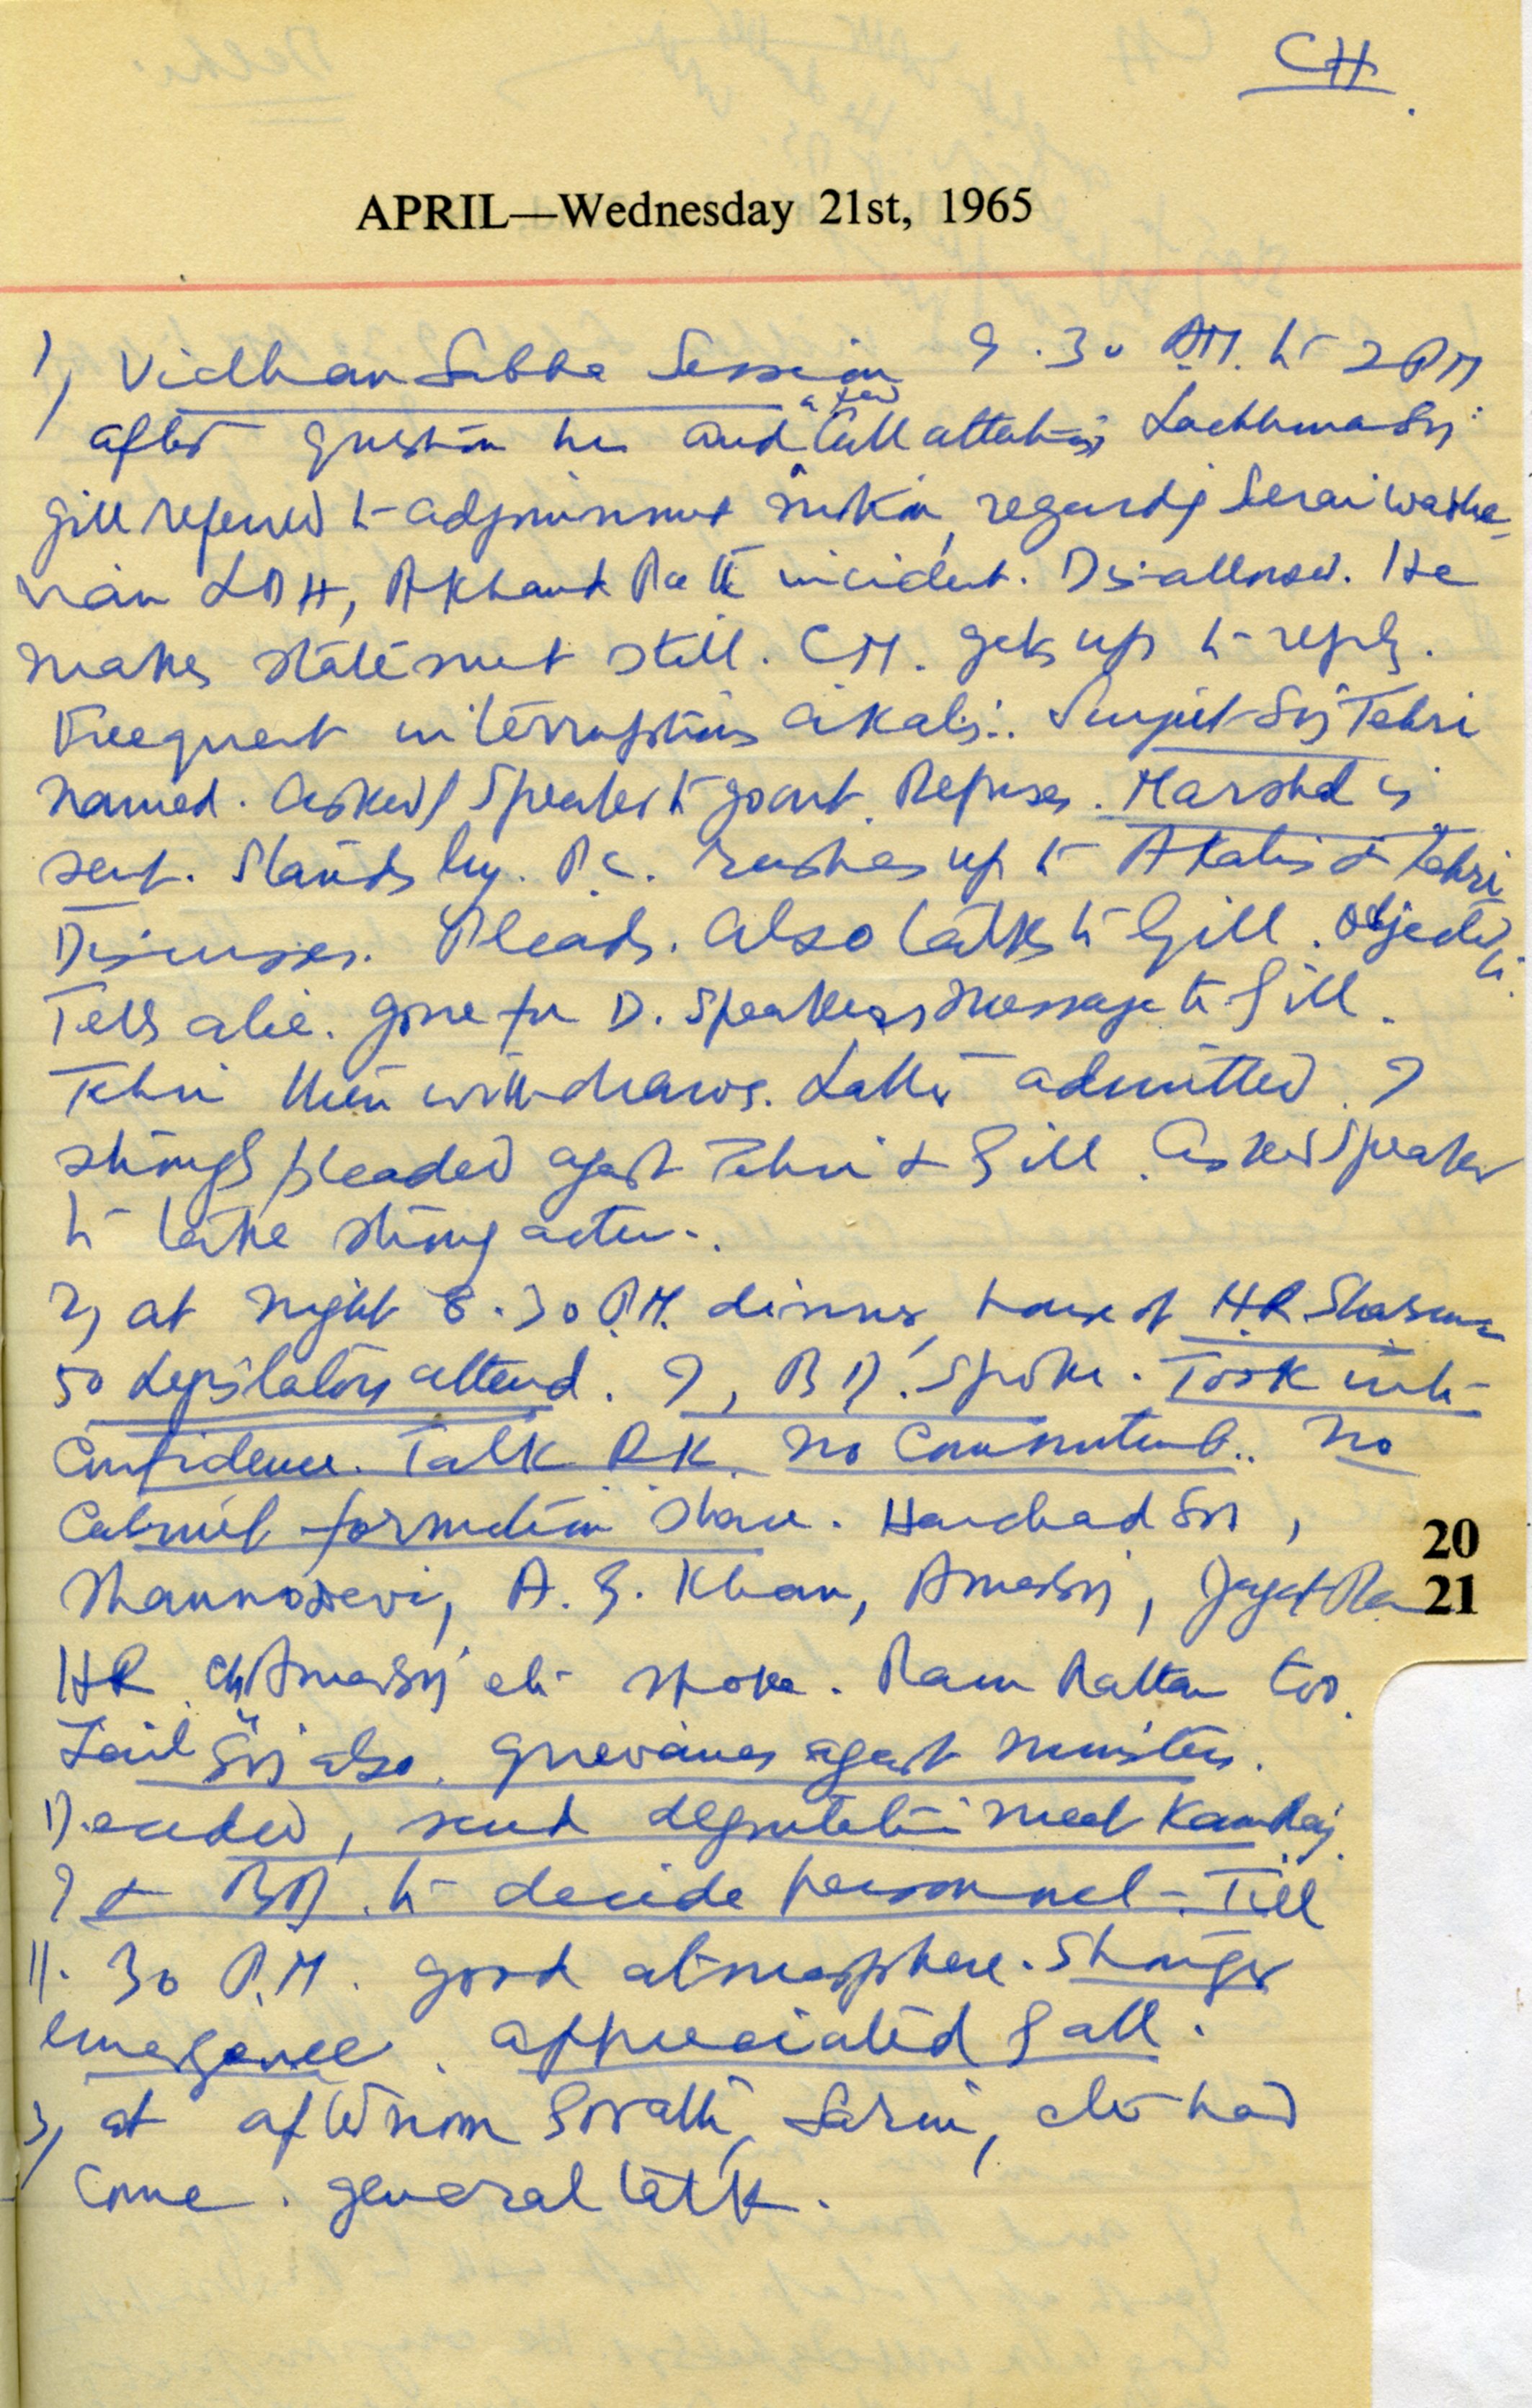 CH.
APRIL—Wednesday 21st, 1965
1) Vidhan Sabha Session 9.30 A.M. to 2 PM
a few
after question hr and Call attentions Lachhman Sij
Gill referred to adjournment motion, regardg Serai
LDH, Akhand Path incident. Disallowed. He
makes statement still. CM. gets up to reply.
Freequent interruptions akalis. Surjit Sij Tehri
named. asked Speaker to go out. Refuses. Marshal is
sent. Stands by. P.C. rushes up to Akalis & Tehri
Discusses. Pleads. Also talks to Gill. Objected to.
Tells a lie. gone for D. Speakers message to Gill.
Tehri then withdraws. Latter admitted. I
strongly pleaded agast Tehri & Gill. Asked Speaker
to take strong action.
2) at night 8.30 P.M. dinner, house of H.R. Sharma
50 Legislators attend. I, BD. Spoke. Took into
Confidence. Talk RK. No Commitment. No
Cabinet formation share. Harchad Sij,
Shannodevi, A.G. Khan, Amar Sij, Jagat Ram
HR. Ch Amar Sij etc spoke. Ram Rattan too.
Zail Sij also. Grievances agast ministers.
Decided, send deputation meet Kamraj.
I & BD. to decide personnel. Till
11.30 P.M. good atmosphere. Stronger
emergence. appreciated by all.
3) at afternoon Sarin, etc had
come. general talk.
20
21